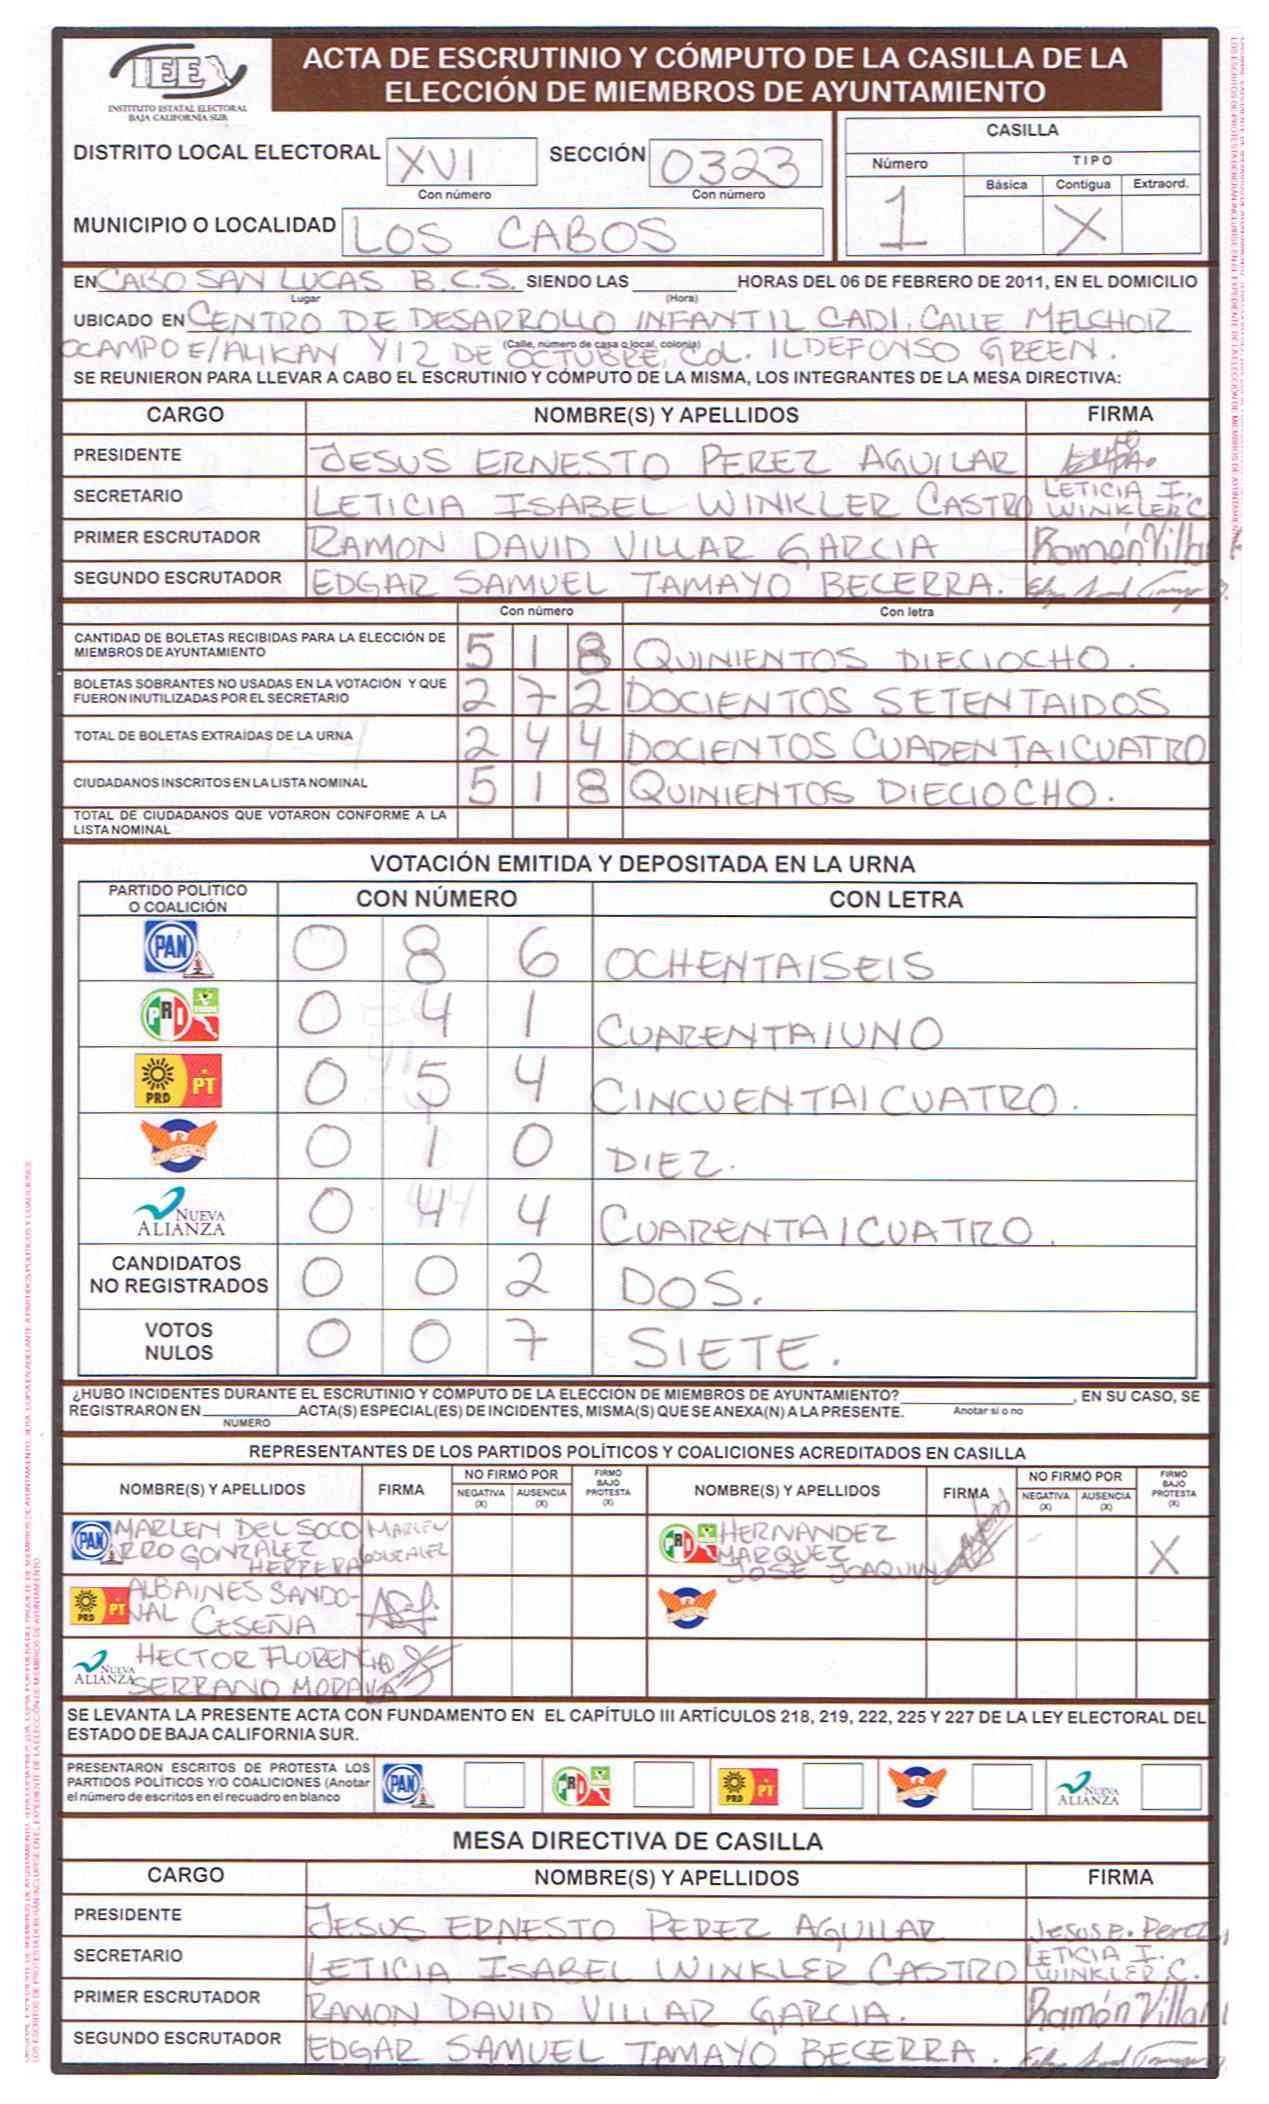 IEE
INSTITUTO ESTATAL ELECTORAL
BAJA CALIFORNIA SUR
ACTA DE ESCRUTINIO Y CÓMPUTO DE LA CASILLA DE LA
ELECCIÓN DE MIEMBROS DE AYUNTAMIENTO
DISTRITO LOCAL ELECTORAL XVI SECCIÓN 0323
Con número Con número
MUNICIPIO O LOCALIDAD LOS CABOS
CASILLA
Número TIPO
Básica Contigua Extraord.
1 X
EN CABO SAN LUCAS B.C.S. SIENDO LAS HORAS DEL 06 DE FEBRERO DE 2011, EN EL DOMICILIO
Lugar (Hora)
UBICADO EN CENTRO DE DESARROLLO INFANTIL CADI. CALLE MELCHOR
(Calle, número de casa o local, colonia)
OCAMPO E/ALIKAN Y 12 DE OCTUBRE, COL. ILDEFONSO GREEN.
SE REUNIERON PARA LLEVAR A CABO EL ESCRUTINIO Y CÓMPUTO DE LA MISMA, LOS INTEGRANTES DE LA MESA DIRECTIVA:
CARGO NOMBRE(S) Y APELLIDOS FIRMA
PRESIDENTE JESUS ERNESTO PEREZ AGUILAR
SECRETARIO LETICIA ISABEL WINKLER CASTRO LETICIA I. WINKLER C
PRIMER ESCRUTADOR RAMON DAVID VILLAR GARCIA Ramón Villar
SEGUNDO ESCRUTADOR EDGAR SAMUEL TAMAYO BECERRA.
Con número Con letra
CANTIDAD DE BOLETAS RECIBIDAS PARA LA ELECCIÓN DE
MIEMBROS DE AYUNTAMIENTO 5 1 8 QUINIENTOS DIECIOCHO.
BOLETAS SOBRANTES NO USADAS EN LA VOTACIÓN Y QUE
FUERON INUTILIZADAS POR EL SECRETARIO 2 7 2 DOCIENTOS SETENTAIDOS
TOTAL DE BOLETAS EXTRAÍDAS DE LA URNA 2 4 4 DOCIENTOS CUARENTAICUATRO
CIUDADANOS INSCRITOS EN LA LISTA NOMINAL 5 1 8 QUINIENTOS DIECIOCHO.
TOTAL DE CIUDADANOS QUE VOTARON CONFORME A LA
LISTA NOMINAL
VOTACIÓN EMITIDA Y DEPOSITADA EN LA URNA
PARTIDO POLÍTICO
O COALICIÓN CON NÚMERO CON LETRA
PAN 0 8 6 OCHENTAISEIS
PRI 0 4 1 CUARENTAIUNO
PRD PT 0 5 4 CINCUENTAICUATRO.
CONVERGENCIA 0 1 0 DIEZ.
NUEVA ALIANZA 0 4 4 CUARENTAICUATRO.
CANDIDATOS
NO REGISTRADOS 0 0 2 DOS.
VOTOS
NULOS 0 0 7 SIETE.
¿HUBO INCIDENTES DURANTE EL ESCRUTINIO Y CÓMPUTO DE LA ELECCIÓN DE MIEMBROS DE AYUNTAMIENTO? , EN SU CASO, SE
REGISTRARON EN ACTA(S) ESPECIAL(ES) DE INCIDENTES, MISMA(S) QUE SE ANEXA(N) A LA PRESENTE. Anotar si o no
NUMERO
REPRESENTANTES DE LOS PARTIDOS POLÍTICOS Y COALICIONES ACREDITADOS EN CASILLA
NOMBRE(S) Y APELLIDOS FIRMA NO FIRMÓ POR NEGATIVA (X) AUSENCIA (X) FIRMÓ BAJO PROTESTA (X) NOMBRE(S) Y APELLIDOS FIRMA NO FIRMÓ POR NEGATIVA (X) AUSENCIA (X) FIRMÓ BAJO PROTESTA (X)
PAN MARLEN DEL SOCO MARLEN PRI HERNANDEZ
RRO GONZALEZ GONZALEZ MARQUEZ X
HERRERA JOSE JOAQUIN
PRD PT ALBAINES SANDO-
VAL CESEÑA
NUEVA ALIANZA HECTOR FLORENCIO
SERRANO
SE LEVANTA LA PRESENTE ACTA CON FUNDAMENTO EN EL CAPÍTULO III ARTÍCULOS 218, 219, 222, 225 Y 227 DE LA LEY ELECTORAL DEL
ESTADO DE BAJA CALIFORNIA SUR.
PRESENTARON ESCRITOS DE PROTESTA LOS
PARTIDOS POLÍTICOS Y/O COALICIONES (Anotar
el número de escritos en el recuadro en blanco PAN PRI PRD PT NUEVA ALIANZA
MESA DIRECTIVA DE CASILLA
CARGO NOMBRE(S) Y APELLIDOS FIRMA
PRESIDENTE JESUS ERNESTO PEREZ AGUILAR Jesus E. Perez
SECRETARIO LETICIA ISABEL WINKLER CASTRO LETICIA I. WINKLER C.
PRIMER ESCRUTADOR RAMON DAVID VILLAR GARCIA. Ramón Villar
SEGUNDO ESCRUTADOR EDGAR SAMUEL TAMAYO BECERRA.